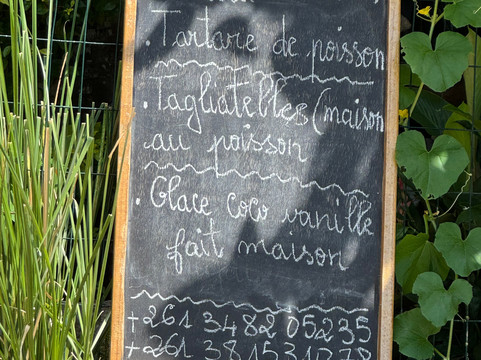 . Tartare de poisson
. Tagliatelles (maison
au poisson
. Glace coco vanille
fait maison
+261 34 82 052 35